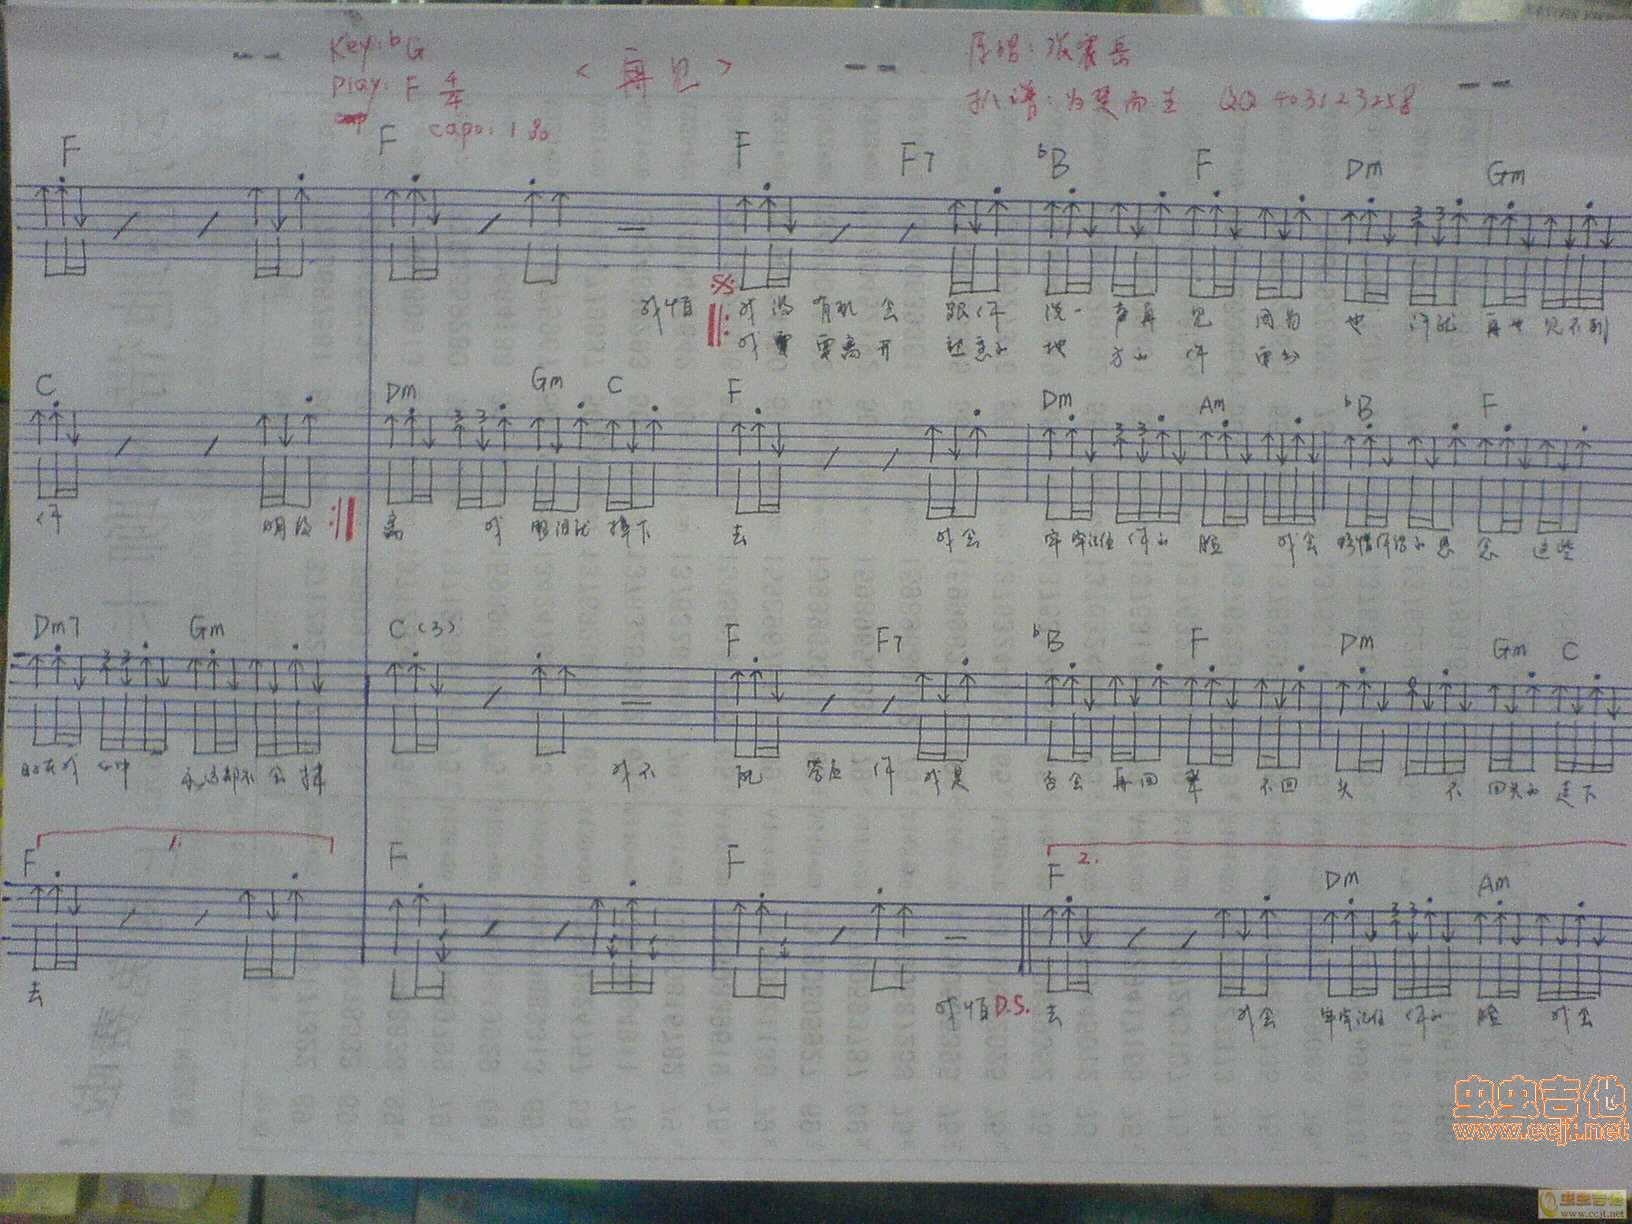 Key: ♭G
Play: F 4/4
capo: 1品
<再见>
原唱: 张震岳
扒谱: 为楚而生 QQ 403123258
F F F F7 ♭B F Dm Gm
我怕 我没 有机 会 跟你 说一 声再 见 因为 也 许就 再也 见不到
我 要 要离 开 熟悉的 地 方的 你 要分
C Dm Gm C F Dm Am ♭B F
你 明天 离 我 眼泪就 掉下 去 我会 牢牢记住 你的 脸 我会 珍惜你给的思 念 这些
Dm7 Gm C(3) F F7 ♭B F Dm Gm C
日子在我 心中 永远都不 会 抹 我不 能 答应 你 我是 否会 再回 来 不回 头 不 回头的 走下
1.
2.
F F F F Dm Am
去 我怕 D.S. 去 我会 牢牢记住 你的 脸 我会
虫虫吉他
www.ccjt.net
虫虫吉他
www.ccjt.net